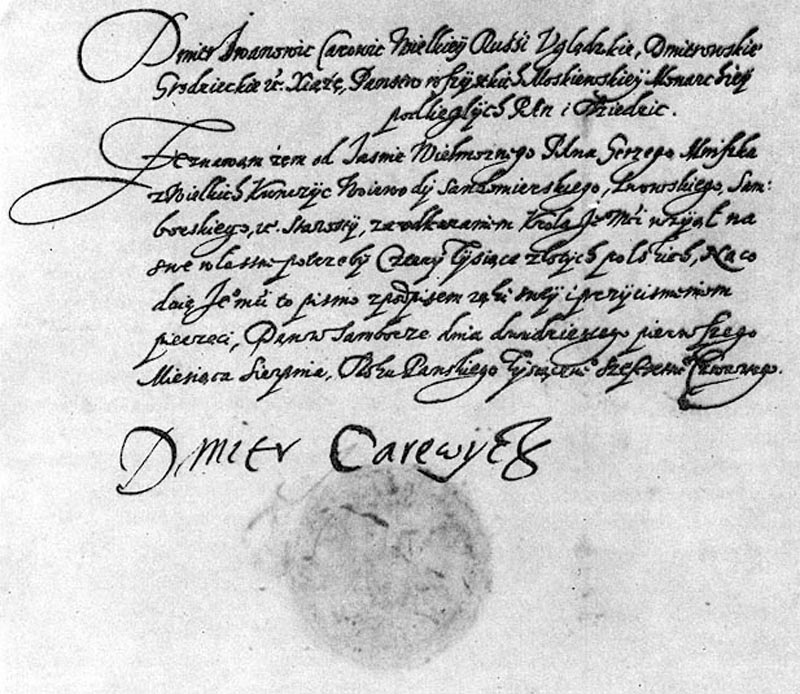 Dmitr Iwanowic Carowic Wielkiey Russi Uglądzkie, Dmitrowskie
Grodzieckie etc. Xiążę, Panstw wszystkich Moskiewskiey Monarchiey
podległych Pan i Dziedzic.
Zeznawam żem od Jasnie Wielmoznego Pana Gerzego Mniszka
z Wielkich Kunczyc Woiewody Sandomierskiego, Lwowskiego, Sam:
borskiego, etc. Starosty, za Krola Je Mći wziął na
swe własne potrzeby Cztery Tysiące złotych polskich, Na co
daię Je mći to pismo z podpisem ręki swey i przycisnieniem
pieczęci, Dan w Samborze dnia dwudziestego pierwszego
Miesiąca Sierpnia, Roku Panskiego Tysiącnego Czwartego.
Dmitr Carewycz